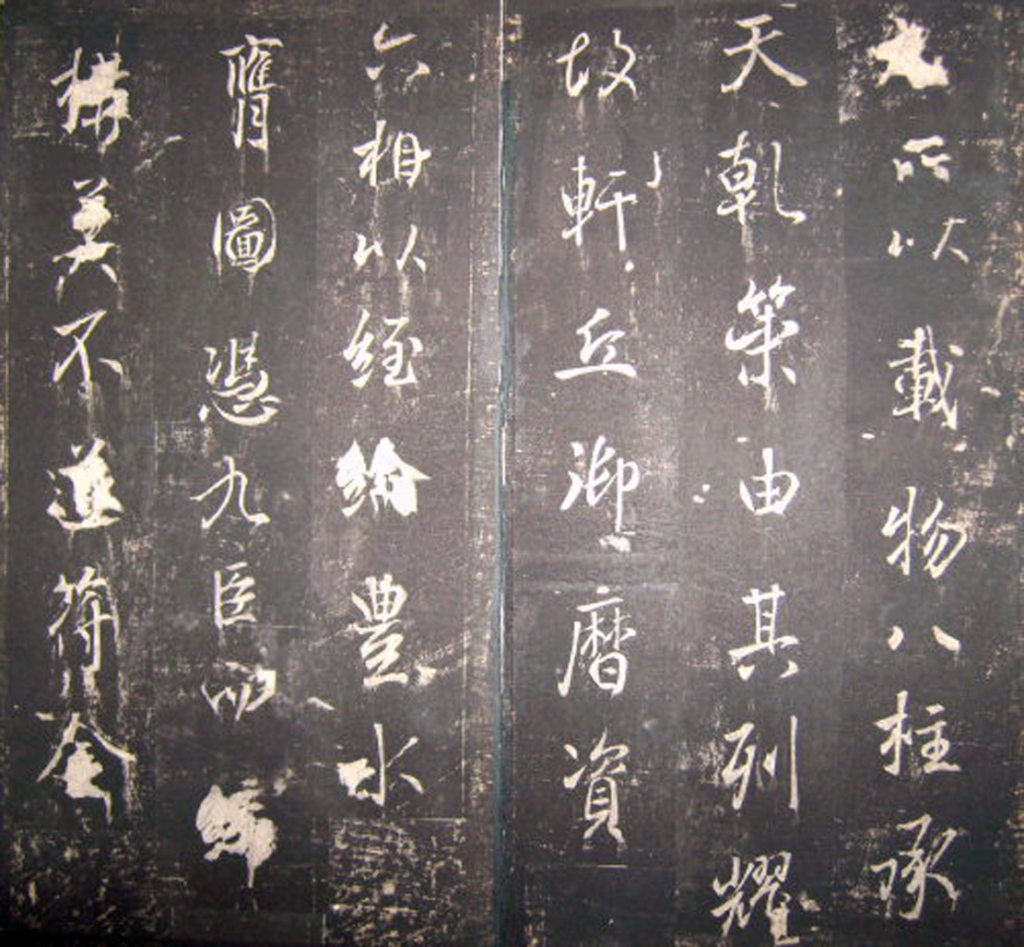 所以載物八柱承
天乾策由其列耀
故軒丘御曆資
六相以經綸豐水
膺圖憑九臣而締
構莫不符金